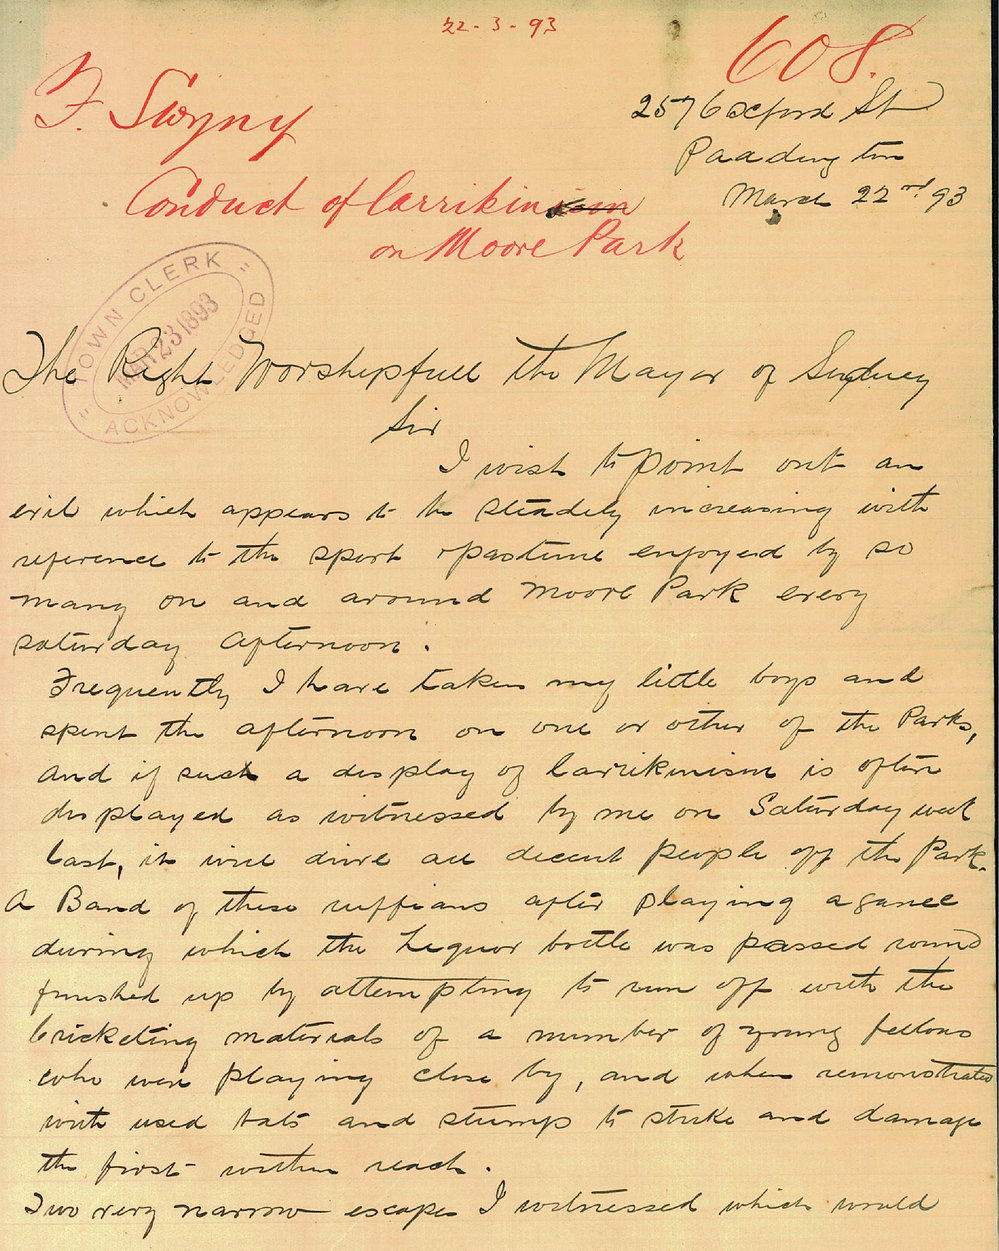 22-3-93
608.
F. Swyny
2576 Oxford St
Paddington
March 22nd 93
Conduct of larrikinism
on Moore Park
"TOWN CLERK"
MAR 23 1893
ACKNOWLEDGED
The Right Worshipfull the Mayor of Sydney
Sir
I wish to point out an
evil which appears to be steadely increasing with
reference to the sport & pastime enjoyed by so
many on and around Moore Park every
saturday afternoon.
Frequently I have taken my little boys and
spent the afternoon on one or other of the Parks,
and if such a display of larrikinism is often
displayed as witnessed by me on Saturday week
last, it will drive all decent people off the Park.
A Band of these ruffians after playing a game
during which the Liquor bottle was passed round
finished up by attempting to run off with the
cricketing materials of a number of young fellows
who were playing close by, and when remonstrated
with used bats and stumps to strike and damage
the first within reach.
Two very narrow escapes I witnessed which would